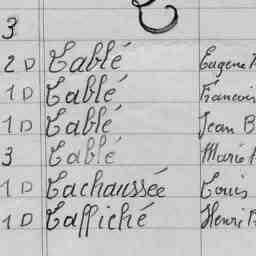 L
3
2 D Lablé Eugène
1 D Lablé François
1 D Lablé Jean B
3 Lablé Marie
1 D Lachaussée Louis
1 D Laffiché Henri